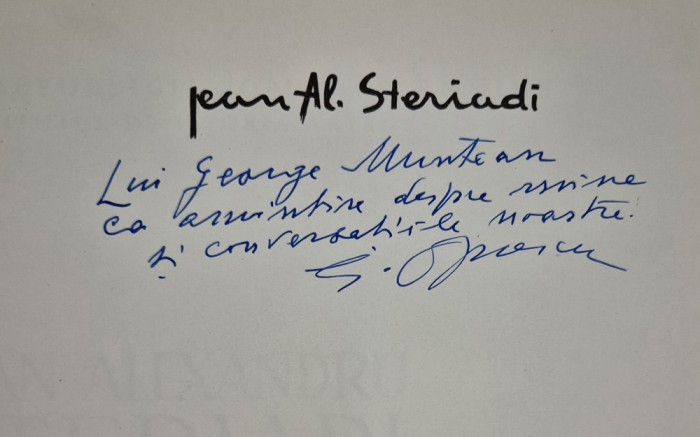 jean Al. Steriadi
Lui George Muntean
ca amintire despre mine
și conversațiile noastre.
G. Oprescu
AN ALEXANDRU
STERIADI